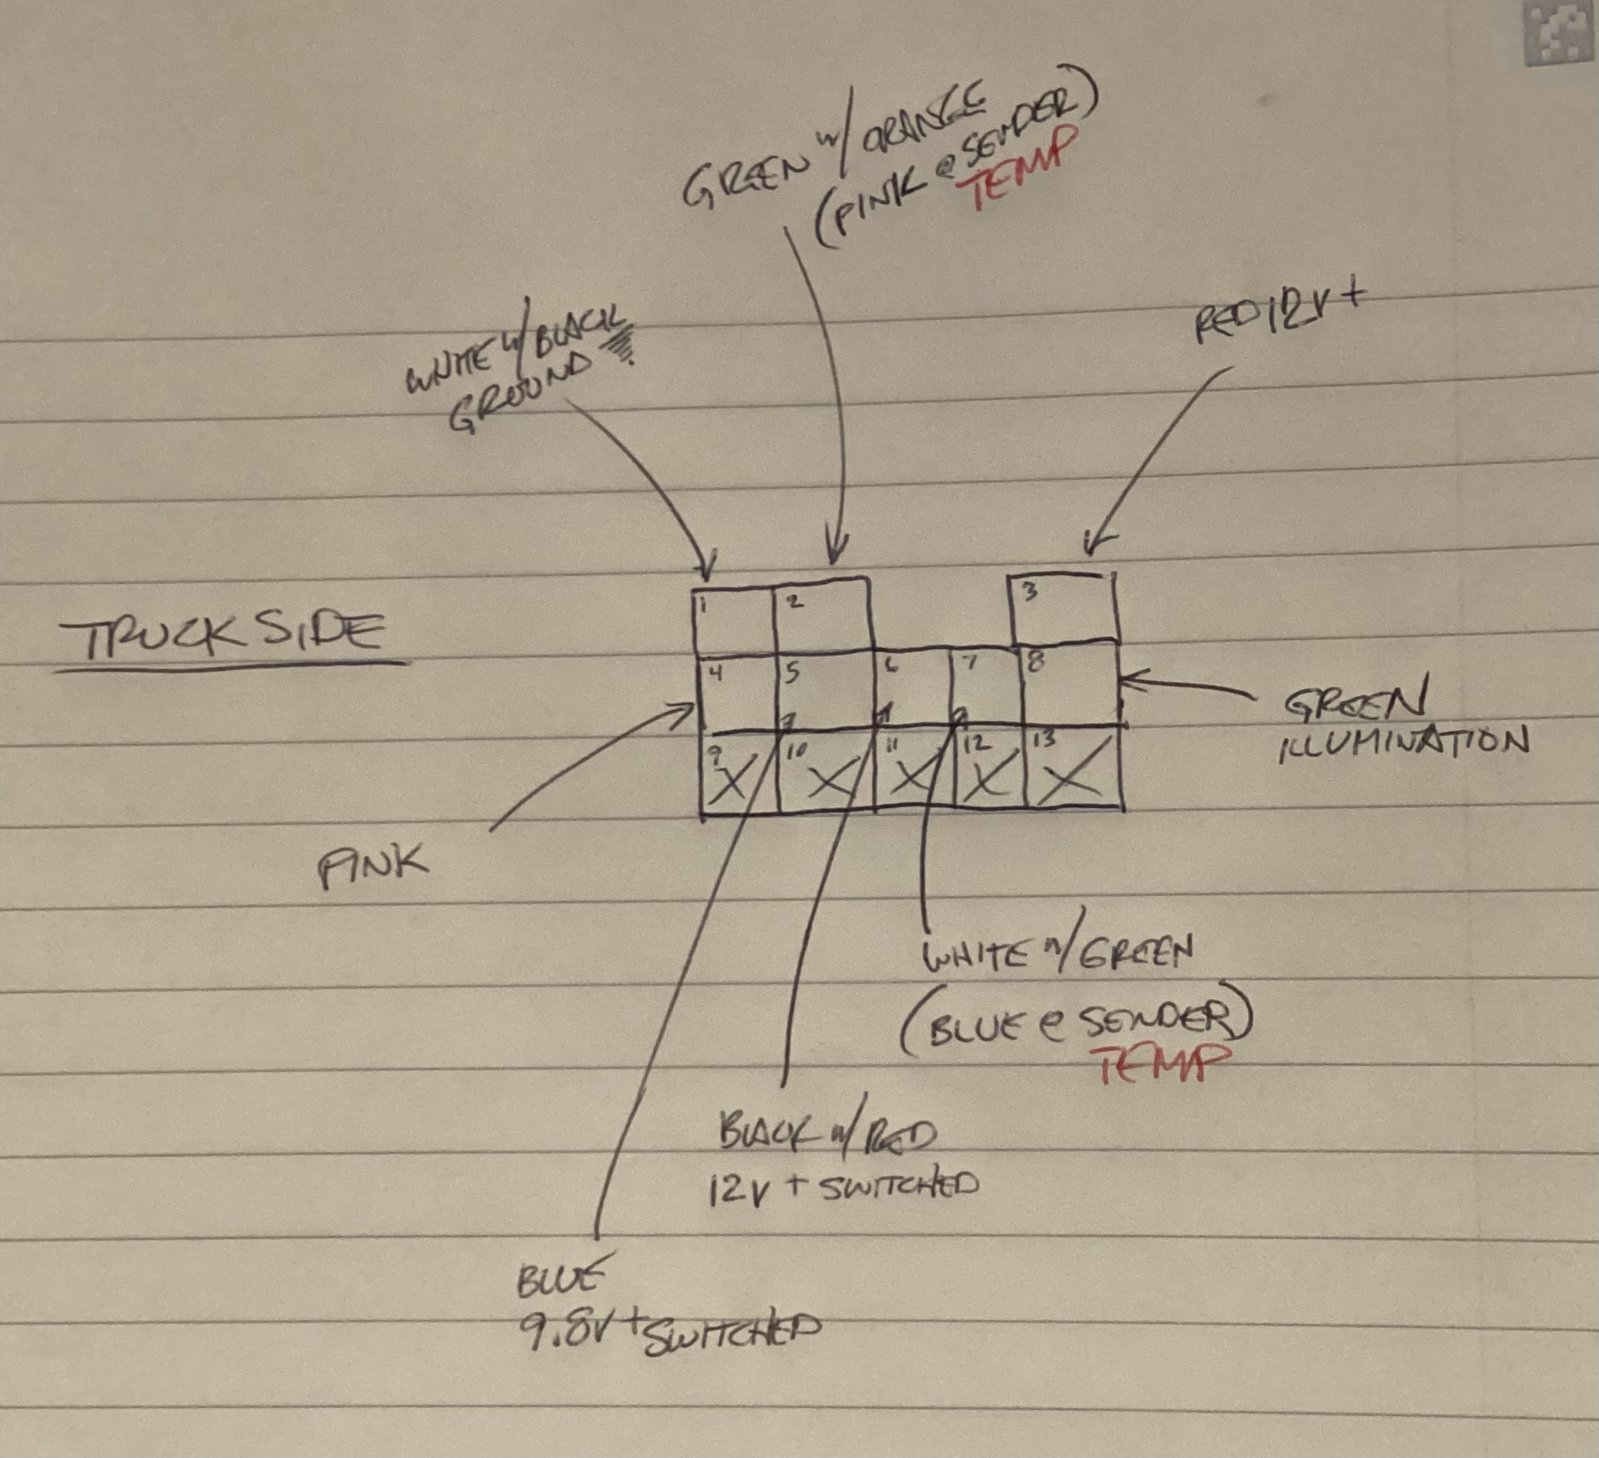 GREEN w/ ORANGE
(PINK @ SENDER)
TEMP
WHITE w/ BLACK
GROUND
RED 12V+
TRUCK SIDE
1 2 3
4 5 6 7 8
9 10 11 12 13
X X X X X
GREEN
ILLUMINATION
PINK
WHITE w/ GREEN
(BLUE @ SENDER)
TEMP
BLACK w/ RED
12V + SWITCHED
BLUE
9.8V + SWITCHED